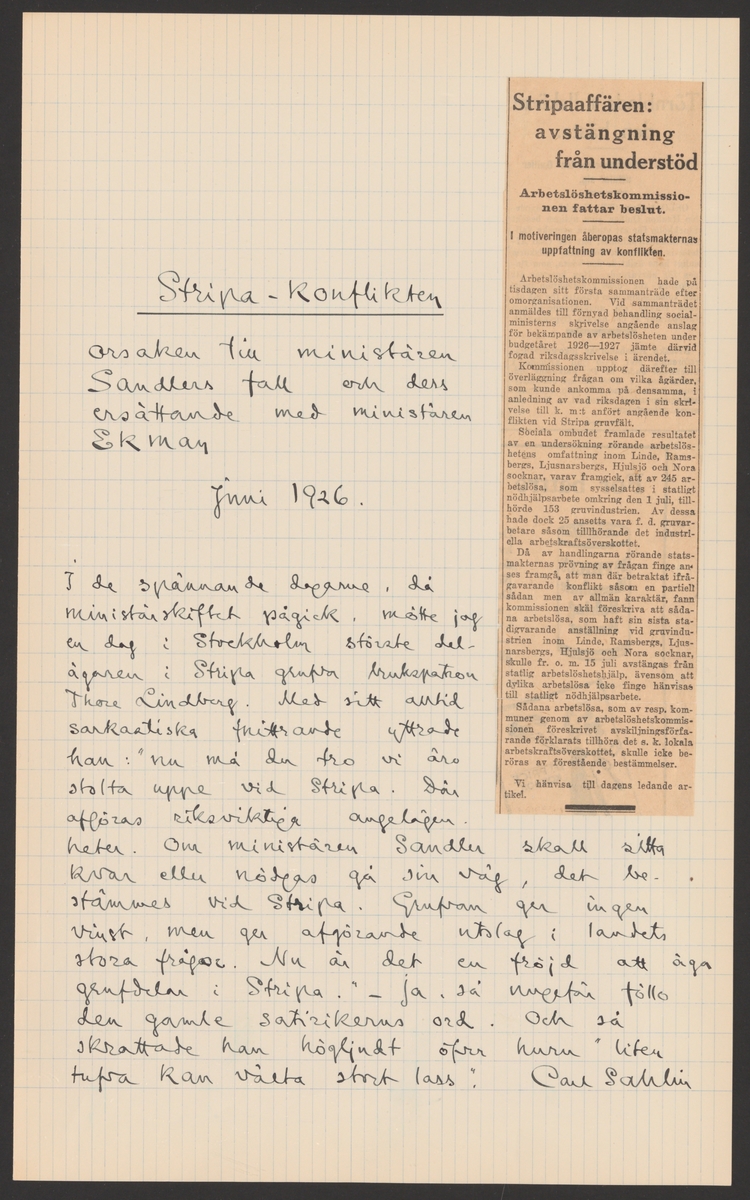 Stripa-Konflikten
orsaken till ministären
Sandlers fall och dess
ersättande med ministären
Ekman
Juni 1926.
I de spännande dagarne, då
ministärskiftet pågick, mötte jag
en dag i Stockholm störste del-
ägaren i Stripa grufva brukspatron
Thore Lindberg. Med sitt alltid
sarkastiska fnittrande yttrade
han: "nu må du tro vi äro
stolta uppe vid Stripa. Där
afgöras riksviktiga angelägen-
heter. Om ministären Sandler skall sitta
kvar eller nödgas gå sin väg, det be-
stämmes vid Stripa. Grufvan ger ingen
vinst, men ger afgörande utslag i landets
stora frågor. Nu är det en fröjd att äga
grufdelar i Stripa." – Ja, så ungefär föllo
den gamle satirikerns ord. Och så
skrattade han högljudt öfver huru "liten
tufva kan välta stort lass". Carl Sahlin
Stripaaffären:
avstängning
från understöd
Arbetslöshetskommissio-
nen fattar beslut.
I motiveringen åberopas statsmakternas
uppfattning av konflikten.
Arbetslöshetskommissionen hade på
tisdagen sitt första sammanträde efter
omorganisationen. Vid sammanträdet
anmäldes till förnyad behandling social-
ministerns skrivelse angående anslag
för bekämpande av arbetslösheten under
budgetåret 1926—1927 jämte därvid
fogad riksdagsskrivelse i ärendet.
Kommissionen upptog därefter till
överläggning frågan om vilka ågärder,
som kunde ankomma på densamma, i
anledning av vad riksdagen i sin skri-
velse till k. m:t anfört angående kon-
flikten vid Stripa gruvfält.
Sbeiala ombudet framlade resultatet
av en undersökning rörande arbetslös-
hetens omfattning inom Linde, Rams-
bergs, Ljusnarsbergs, Hjulsjö och Nora
socknar, varav framgick, att av 245 ar-
betslösa, som sysselsattes i statligt
nödhjälpsarbete omkring den 1 juli, till-
hörde 153 gruvindustrien. Av dessa
hade dock 25 ansetts vara f. d. gruvar-
betare såsom tillhörande det industri-
ella arbetskraftsöverskottet.
Då av handlingarna rörande stats-
makternas prövning av frågan finge an-
ses framgå, att man där betraktat ifrå-
gavarande konflikt såsom en partiell
sådan men av allmän karaktär, fann
kommissionen skäl föreskriva att såda-
na arbetslösa, som haft sin sista sta-
digvarande anställning vid gruvindu-
strien inom Linde, Ramsbergs, Ljus-
narsbergs, Hjulsjö och Nora socknar,
skulle fr. o. m. 15 juli avstängas från
statlig arbetslöshetshjälp, ävensom att
dylika arbetslösa icke finge hänvisas
till statligt nödhjälpsarbete.
Sådana arbetslösa, som av resp. kom-
muner genom av arbetslöshetskommis-
sionen föreskrivet avskiljningsförfa-
rande förklarats tillhöra det s. k. lokala
arbetskraftsöverskottet, skulle icke be-
röras av förestående bestämmelser.
Vi hänvisa till dagens ledande ar-
tikel.